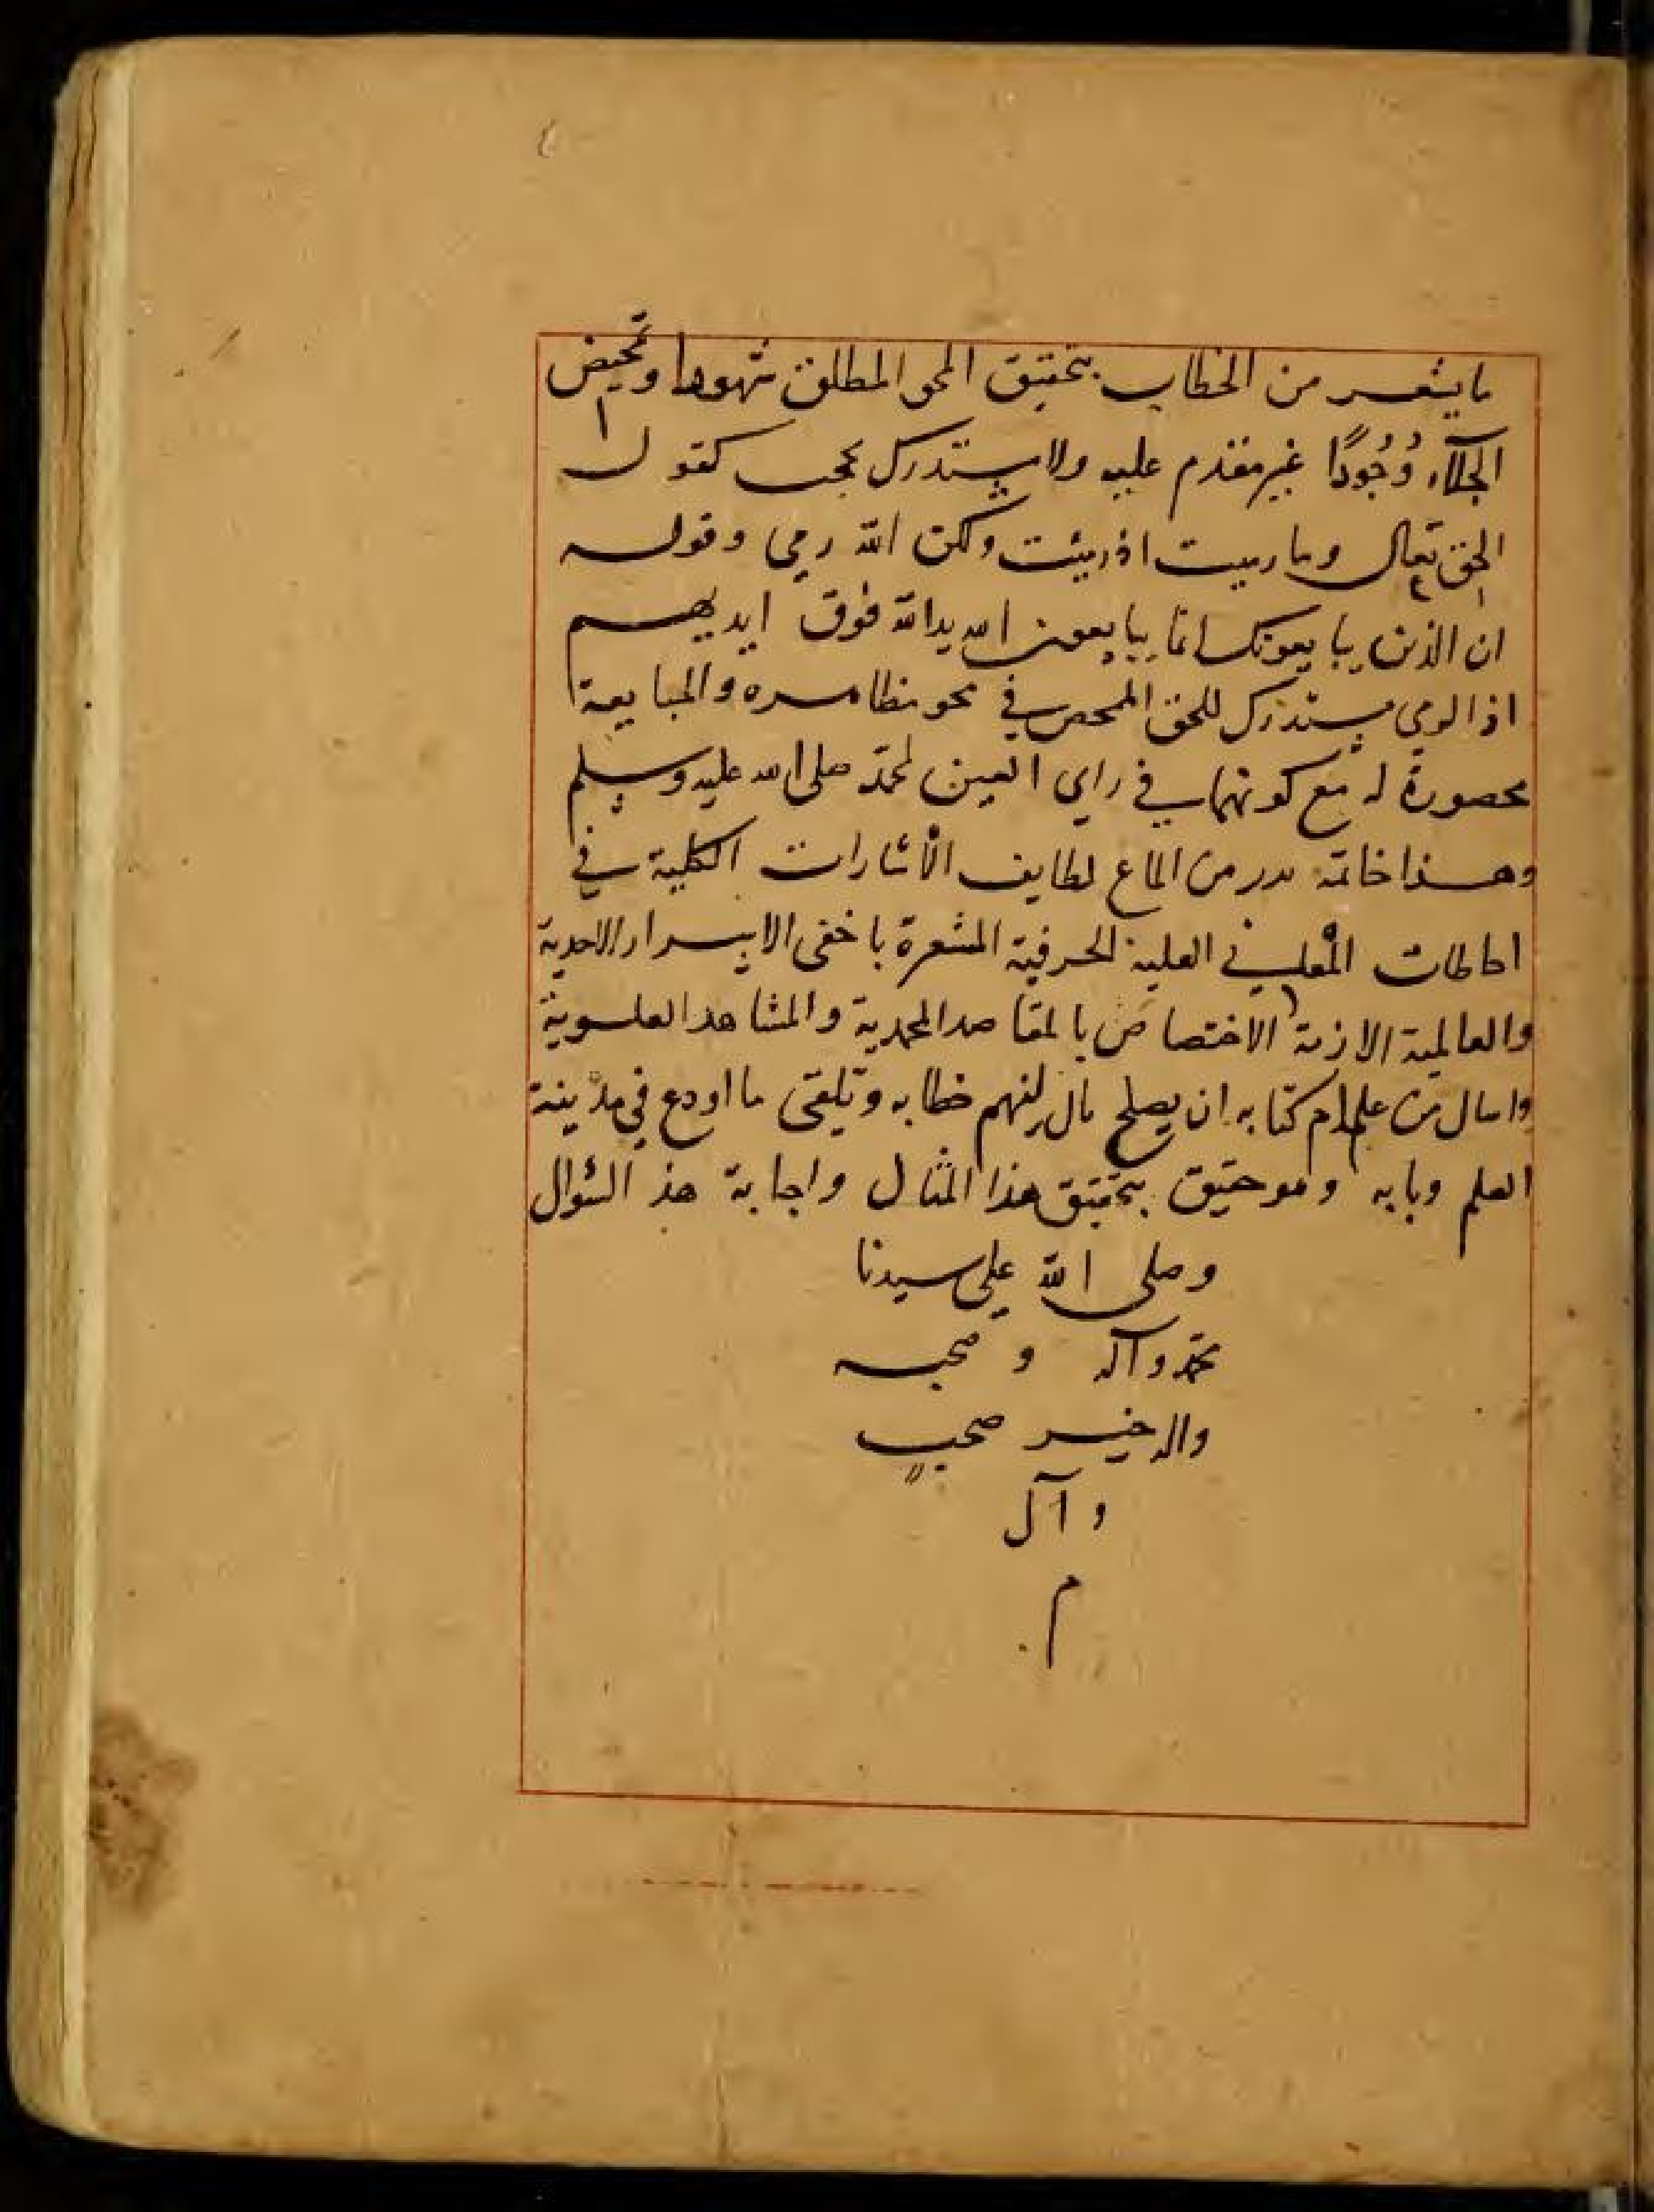 ما يشعر من الخطاب بتحقيق المحو المطلق شهودا وتمحيض
الجلآء وُجُودًا غير مقدم عليه ولا يستدرك بحجب كقول
الحق تعالى وما رميت اذ رميت ولكن الله رمى وقوله
ان الذين يبايعونك انما يبايعون الله يد الله فوق ايديهم
اذ الرمي مستدرك للحق الممحص في محو مظاهره والمبايعة
محصورة له مع كونهما في راي العين لمحمد صلى الله عليه وسلم
وهذا خاتمة بدر من الماع لطايف الأشارات الكلية في
احاطات المعاني العلية الحرفية المشعرة باخفى الاسرار الاحدية
والعالمية الازمة الاختصاص بالمقاصد المحمدية والمشاهد العلوية
واسال من علم ام كتابه ان يصلح بال لفهم خطابه وتلقى ما اودع في مدينة
العلم وبابه وهو حقيق بتحقيق هذا المثال واجابة هذ السؤال
وصلى الله على سيدنا
محمد وآله وصحبه
واله خير صحب
وآل
م